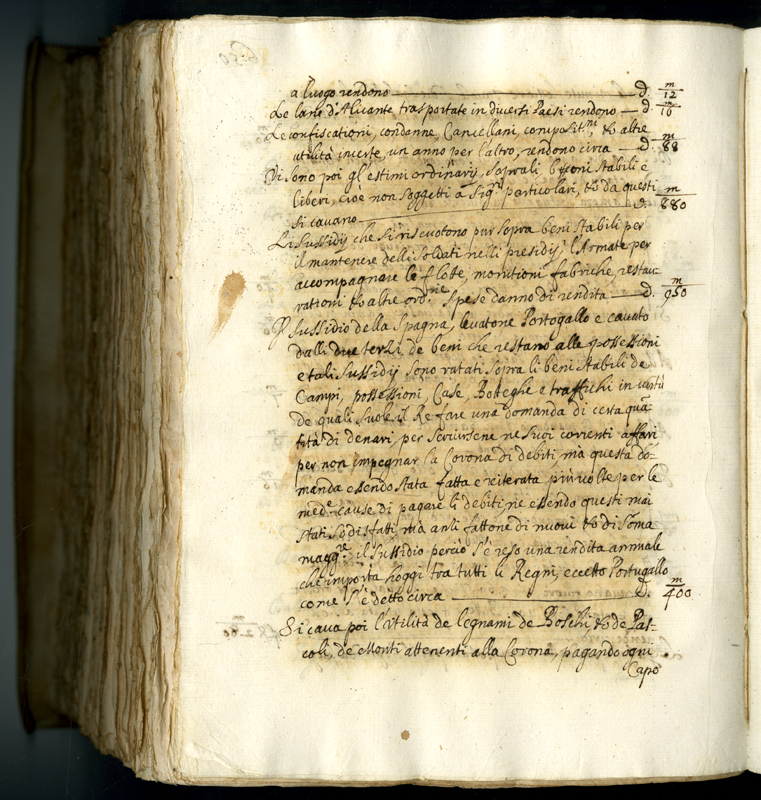 a luogo rendono — d. m/12
Le lane d'Alicante trasportate in diversi Paesi rendono — d. m/16
Le confiscationi, condanne, Cancellarij, composit.ni, et altre
utilità incerte, un anno per l'altro, rendono circa — d. m/88
Vi sono poi gl'estimi ordinarij, sopra li beni stabili e
liberi, cioè non soggetti à Sig.ri particolari, et da questi
si cavano — d. m/880
Li sussidij che si riscuotono pur sopra beni stabili per
il mantenere delli soldati nelli presidij, l'Armate per
accompagnare le flotte, monitioni fabriche, restau
rationi et altre ord.rie spese danno di rendita — d. m/950
Il sussidio della Spagna, levatone Portogallo e cavato
dalli due terzi de beni che restano alle possessioni
e tali sussidij sono ratati sopra li beni stabili de
Campi, possessioni, Case, Botteghe e traffichi in virtù
de quali suole il Re fare una domanda di certa quã
tità di denari, per servirsene ne suoi correnti affari
per non impegnar la Corona di debiti, ma questa do-
manda essendo stata fatta e reiterata più volte per le
med.e cause di pagare li debiti ne essendo questi mai
stati sodisfatti, mà anzi fattone di nuovi et di soma
magg.re il sussidio perciò s'è reso una rendita annuale
che importa hoggi tra tutti li Regni, eccetto Portugallo
come s'è detto circa — d. m/400
Si cava poi l'utilità de legnami de Boschi et de Pas-
coli, de Monti attenenti alla Corona, pagando ogni
Capo